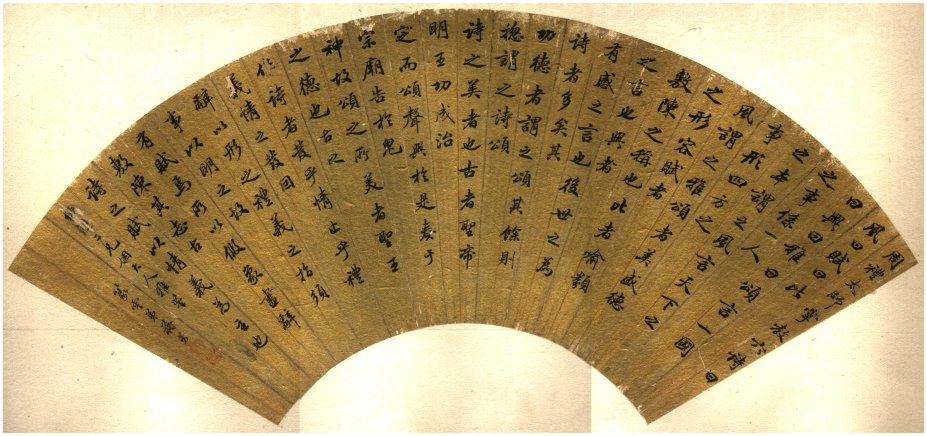 周禮太師掌教六詩曰
風曰賦曰比
曰興曰雅曰頌言一國
之事係一人
之本謂之風言天下之
事形四方之
風謂之雅頌者美盛德
之形容賦者
敷陳之稱也比者喻類
之言也興者
有感之言也後世之為
詩者多矣其
功德者謂之頌其餘則
摠謂之詩頌
詩之美者也古者聖帝
明王功成治
定而頌聲興於是奏于
宗廟告於鬼
神故頌之所美者聖王
之德也古之
作詩者發乎情止乎禮
義情之發因
辭以形之禮義之指須
事以明之故
有賦焉所以假象盡辭
敷陳其志古
詩之賦以情義為主也
兄大人雅